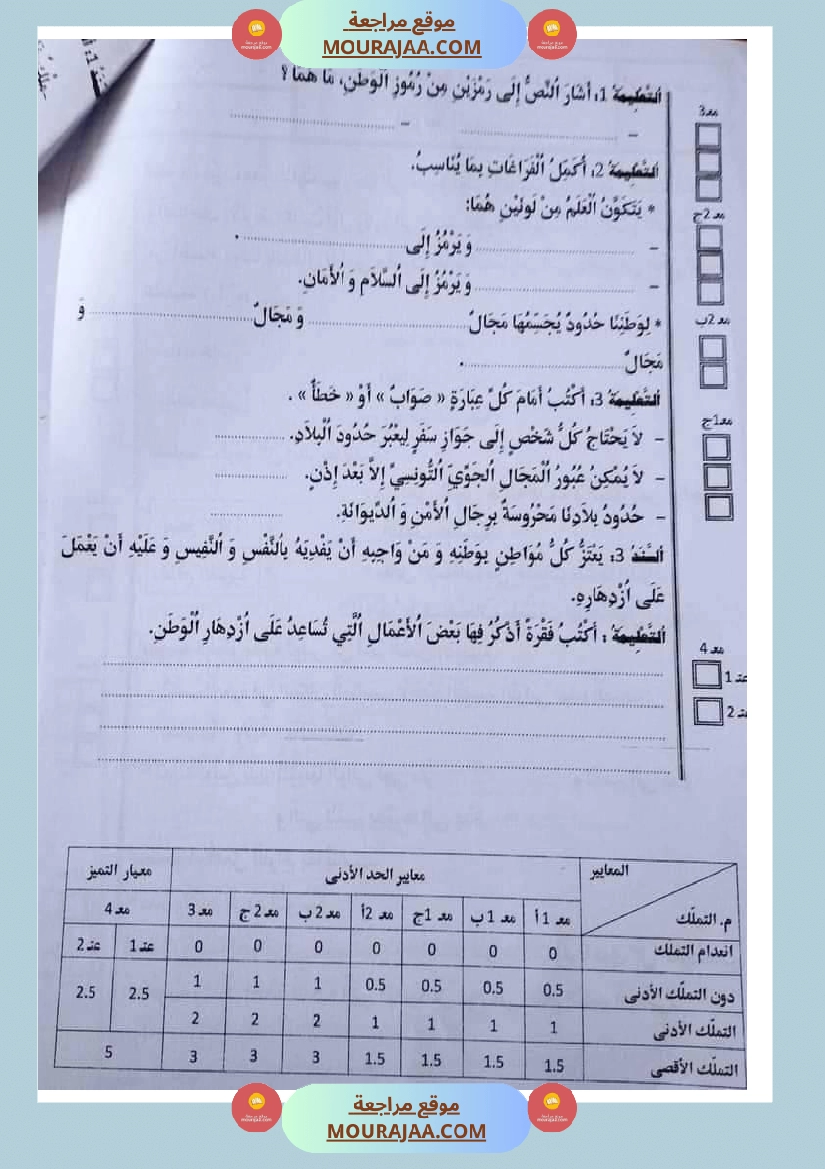 موقع مراجعة
MOURAJAA.COM
التَّعْلِيمَةُ 1: أَشَارَ النَّصُّ إِلَى رَمْزَيْنِ مِنْ رُمُوزِ الْوَطَنِ، مَا هُمَا ؟
معـ3
- ........................ - ........................
التَّعْلِيمَةُ 2: أُكْمِلُ الْفَرَاغَاتِ بِمَا يُنَاسِبُ.
* يَتَكَوَّنُ الْعَلَمُ مِنْ لَوْنَيْنِ هُمَا:
معـ2ج
- ........................ وَ يَرْمُزُ إِلَى ........................ .
- ........................ وَ يَرْمُزُ إِلَى السَّلَامِ وَ الْأَمَانِ.
* لِوَطَنِنَا حُدُودٌ يُجَسِّمُهَا مَجَالٌ ........................ وَ مَجَالٌ ........................ وَ
معـ2ب
مَجَالٌ ........................ .
التَّعْلِيمَةُ 3: أَكْتُبُ أَمَامَ كُلِّ عِبَارَةٍ « صَوَابٌ » أَوْ « خَطَأٌ » .
معـ1ج
- لَا يَحْتَاجُ كُلُّ شَخْصٍ إِلَى جَوَازِ سَفَرٍ لِيَعْبُرَ حُدُودَ الْبِلَادِ. ............
- لَا يُمْكِنُ عُبُورُ الْمَجَالِ الْجَوِّيِّ التُّونِسِيِّ إِلَّا بَعْدَ إِذْنٍ. ............
- حُدُودُ بِلَادِنَا مَحْرُوسَةٌ بِرِجَالِ الْأَمْنِ وَ الدِّيوَانَةِ. ............
السَّنَدُ 3: يَعْتَزُّ كُلُّ مُوَاطِنٍ بِوَطَنِهِ وَ مَنْ وَاجِبِهِ أَنْ يَفْدِيَهُ بِالنَّفْسِ وَ النَّفِيسِ وَ عَلَيْهِ أَنْ يَعْمَلَ
عَلَى ازْدِهَارِهِ.
التَّعْلِيمَةُ : أَكْتُبُ فَقْرَةً أَذْكُرُ فِهَا بَعْضَ الْأَعْمَالِ الَّتِي تُسَاعِدُ عَلَى ازْدِهَارِ الْوَطَنِ.
معـ4
عـ1
عـ2
المعايير معايير الحد الأدنى معيار التميز
م. التملّك معـ1أ معـ1ب معـ1ج معـ2أ معـ2ب معـ2ج معـ3 معـ4
عـ1 عـ2
انعدام التملك 0 0 0 0 0 0 0
دون التملّك الأدنى 0.5 0.5 0.5 0.5 1 1 1 2.5 2.5
التملّك الأدنى 1 1 1 1 2 2 2
التملّك الأقصى 1.5 1.5 1.5 1.5 3 3 3 5
موقع مراجعة
MOURAJAA.COM